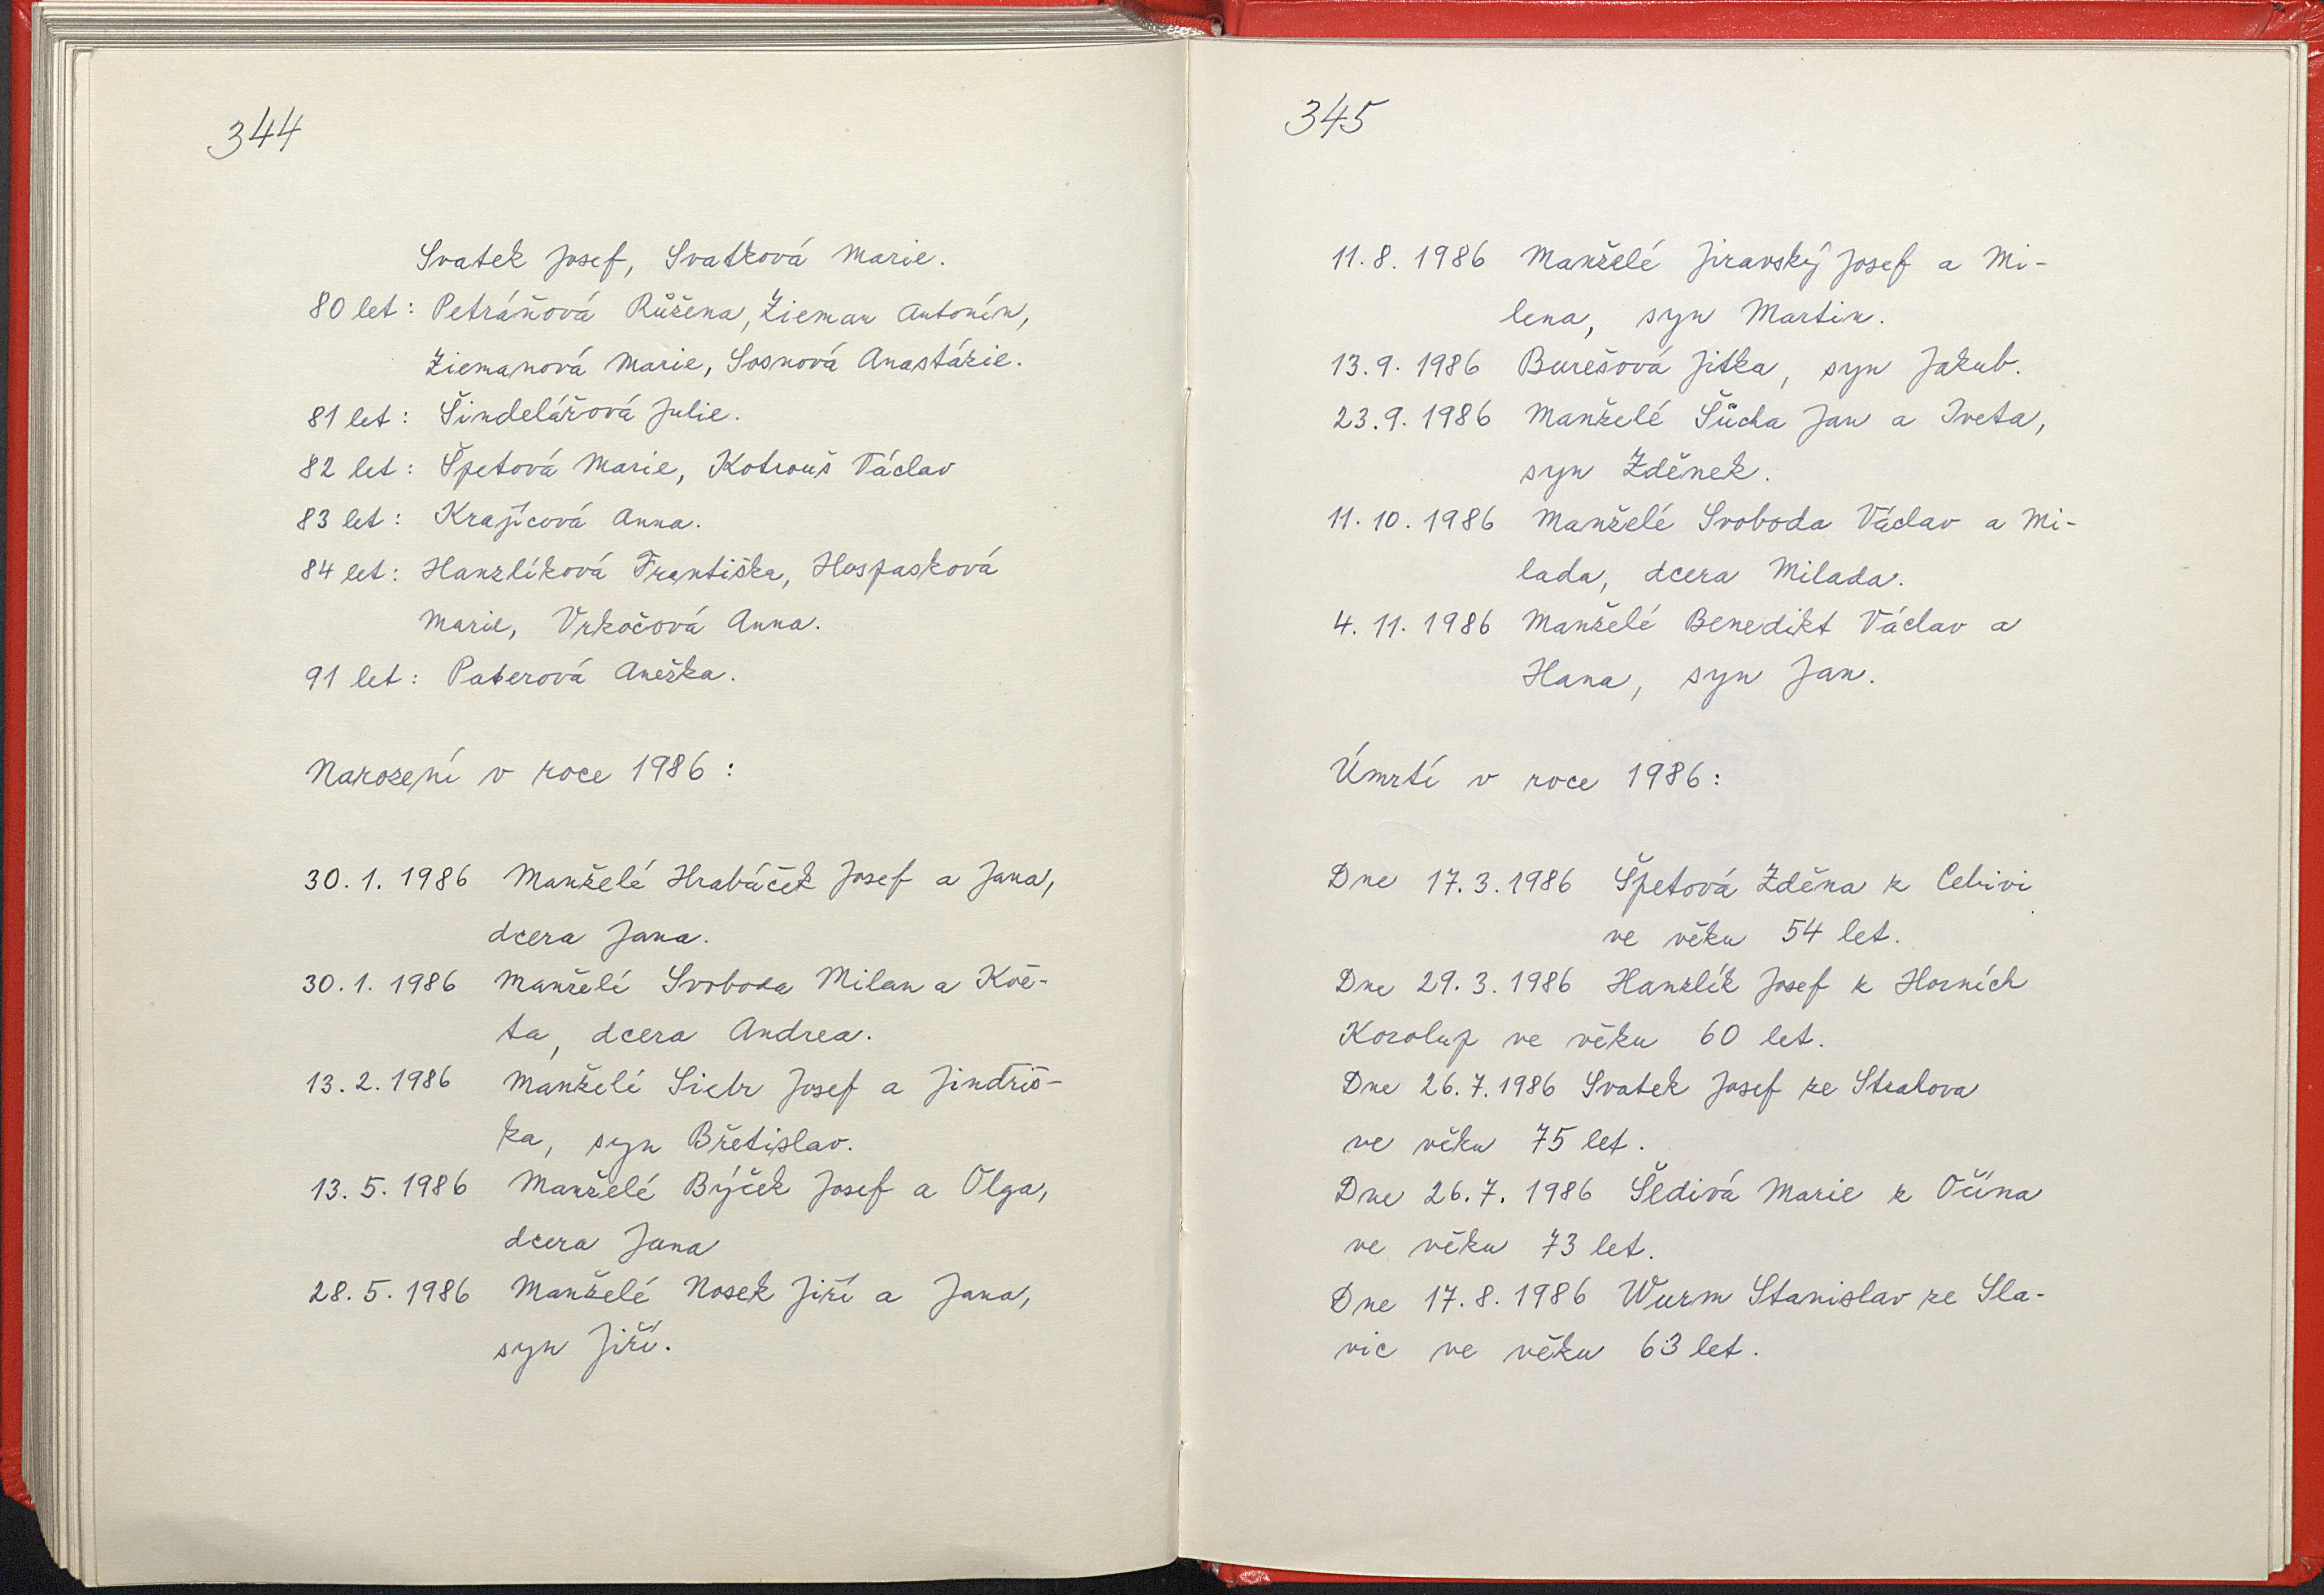 344
Svatek Josef, Svatková Marie.
80 let: Petráňová Růžena, Zieman Antonín,
Ziemanová Marie, Sosnová Anastázie.
81 let: Šindelářová Julie.
82 let: Špetová Marie, Kotrouš Václav
83 let: Krajícová Anna.
84 let: Hanzlíková Františka, Hospasková
Marie, Vrkočová Anna.
91 let: Paterová Anežka.
Narození v roce 1986:
30. 1. 1986 Manželé Hrabáček Josef a Jana,
dcera Jana.
30. 1. 1986 Manželé Svoboda Milan a Kvě-
ta, dcera Andrea.
13. 2. 1986 Manželé Siebr Josef a Jindřiš-
ka, syn Břetislav.
13. 5. 1986 Manželé Býček Josef a Olga,
dcera Jana
28. 5. 1986 Manželé Nosek Jiří a Jana,
syn Jiří.
345
11. 8. 1986 Manželé Jiravský Josef a Mi-
lena, syn Martin.
13. 9. 1986 Burešová Jitka, syn Jakub.
23. 9. 1986 Manželé Šůcha Jan a Iveta,
syn Zděnek.
11. 10. 1986 Manželé Svoboda Václav a Mi-
lada, dcera Milada.
4. 11. 1986 Manželé Benedikt Václav a
Hana, syn Jan.
Úmrtí v roce 1986:
Dne 17. 3. 1986 Špetová Zděna z Cebivi
ve věku 54 let.
Dne 29. 3. 1986 Hanzlík Josef z Horních
Kozolup ve věku 60 let.
Dne 26. 7. 1986 Svatek Josef ze Strahova
ve věku 75 let.
Dne 26. 7. 1986 Šedivá Marie z Očína
ve věku 73 let.
Dne 17. 8. 1986 Wurm Stanislav ze Sla-
vic ve věku 63 let.